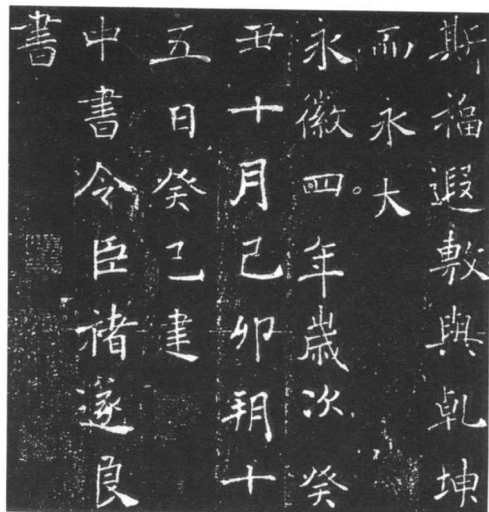 斯福遐敷與乹坤
而永大
永徽四年歳次癸
丑十月己卯朔十
五日癸巳建
中書令臣褚遂良
書